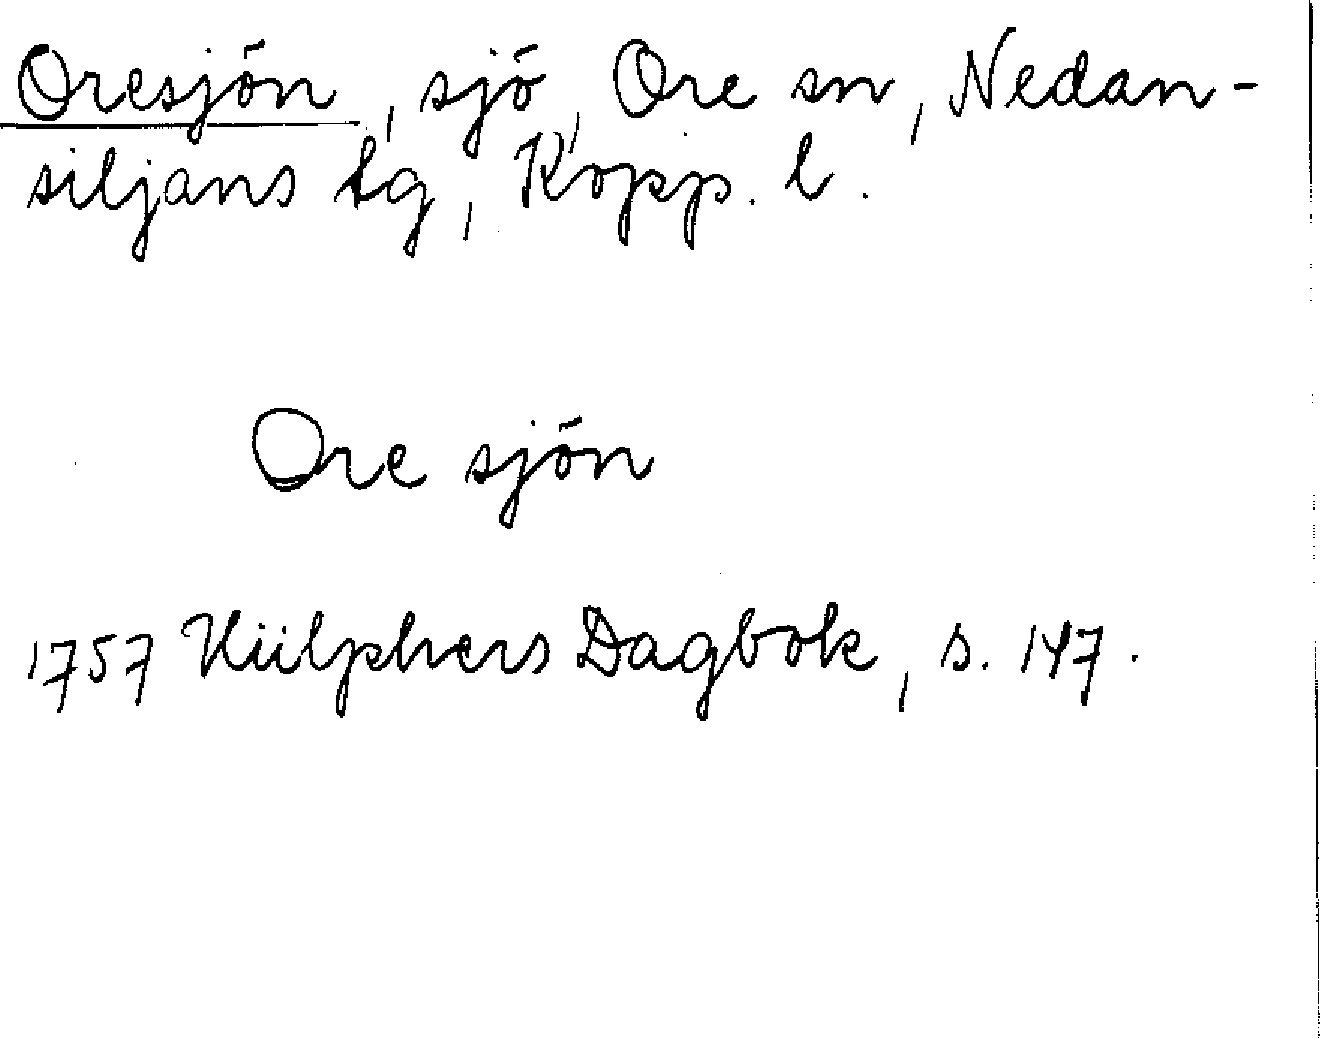 Oresjön, sjö, Ore sn, Nedan-
siljans tg, Kopp. l.
Ore sjön
1757 Hülphers Dagbok, s. 147.